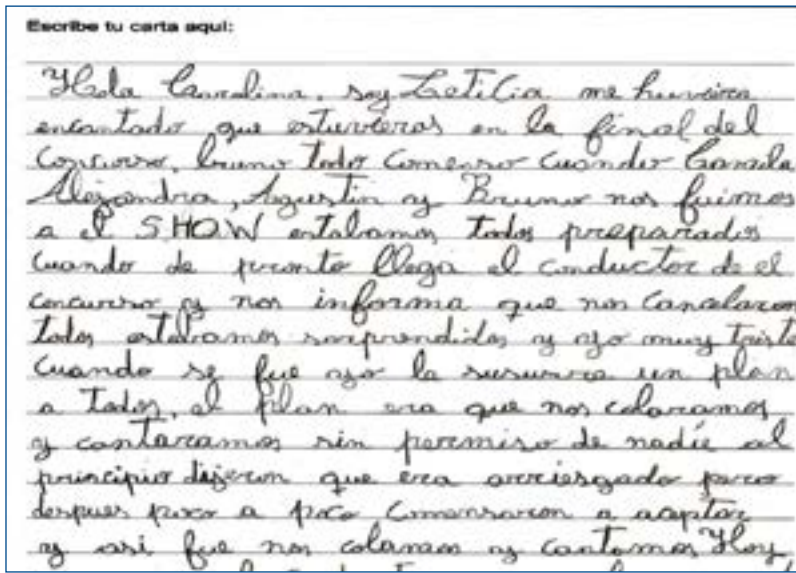 Escribe tu carta aquí:
Hola Carolina, soy LetiCia me huviera
encantado que estuvieras en la final del
Concurso, bueno todo Comenso cuando Camila
Alejandra, Agustin y Bruno nos fuimos
a el SHOW estabamos todos preparados
Cuando de pronto llega el conductor de el
concurso y nos informa que nos Cancelaron
todos estabamos sorprendidos y yo muy triste
Cuando se fue yo le susurre un plan
a Todos, el plan era que nos colaramos
y cantaramos sin permiso de nadie al
principio dijeron que era arriesgado pero
despues poco a poco Comensaron a aceptar
y asi fue nos colamos y cantamos Hoy